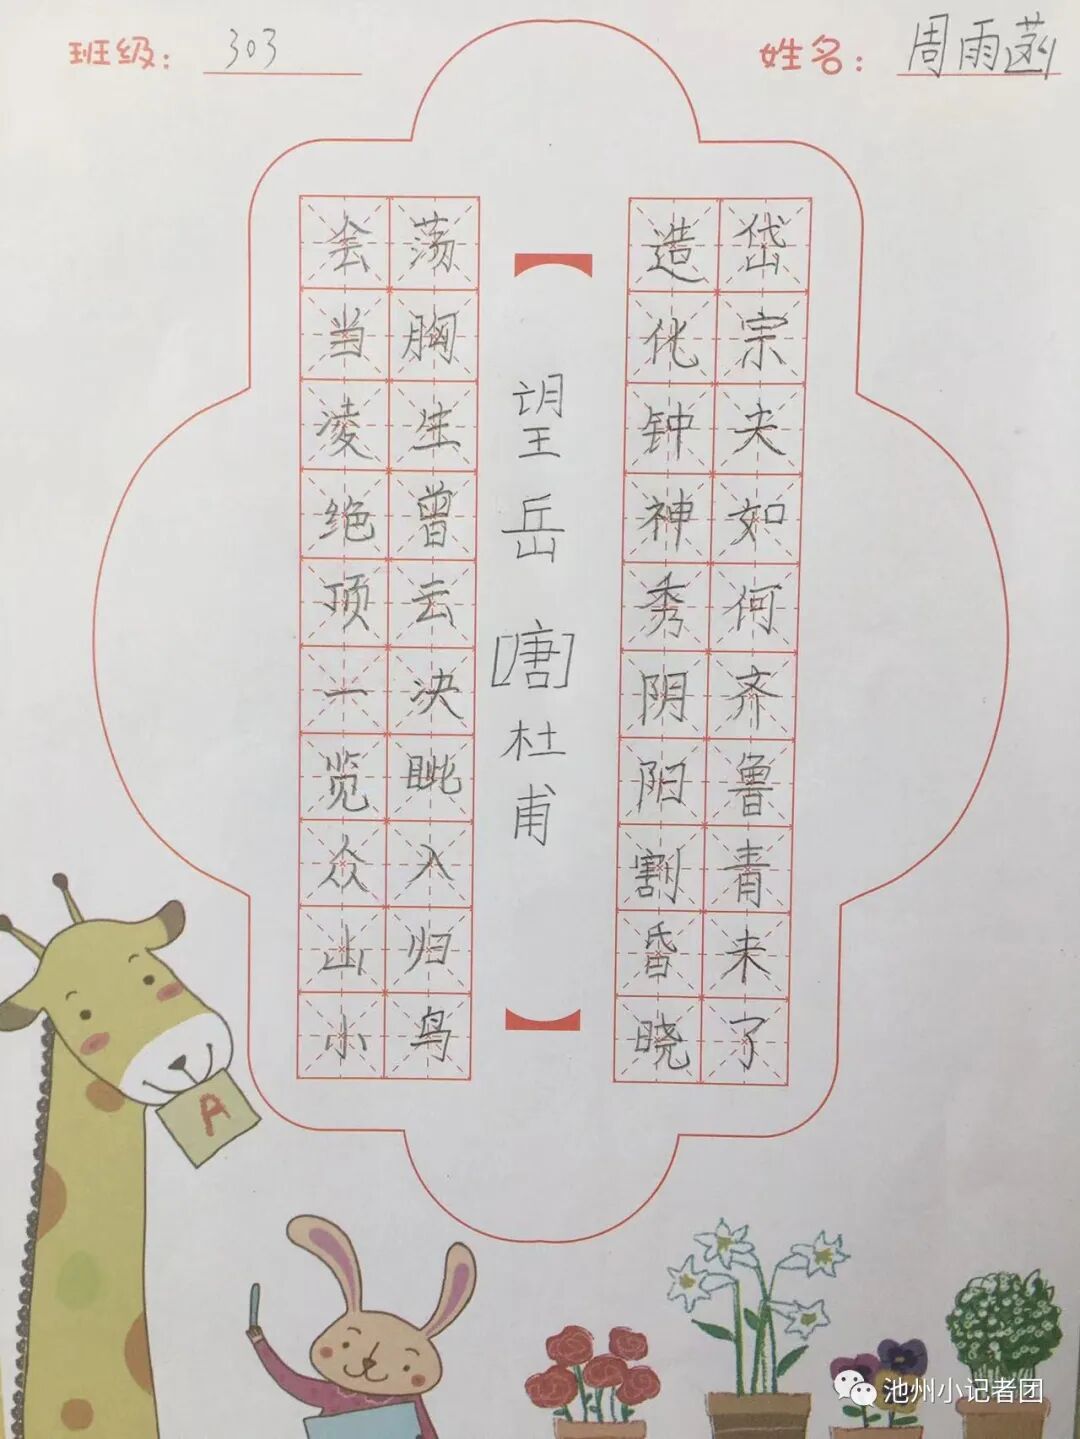 班级：303
姓名：周雨菡
岱宗夫如何齐鲁青来了
造化钟神秀阴阳割昏晓
【望岳[唐]杜甫】
荡胸生曾云决眦入归鸟
会当凌绝顶一览众山小
A
池州小记者团